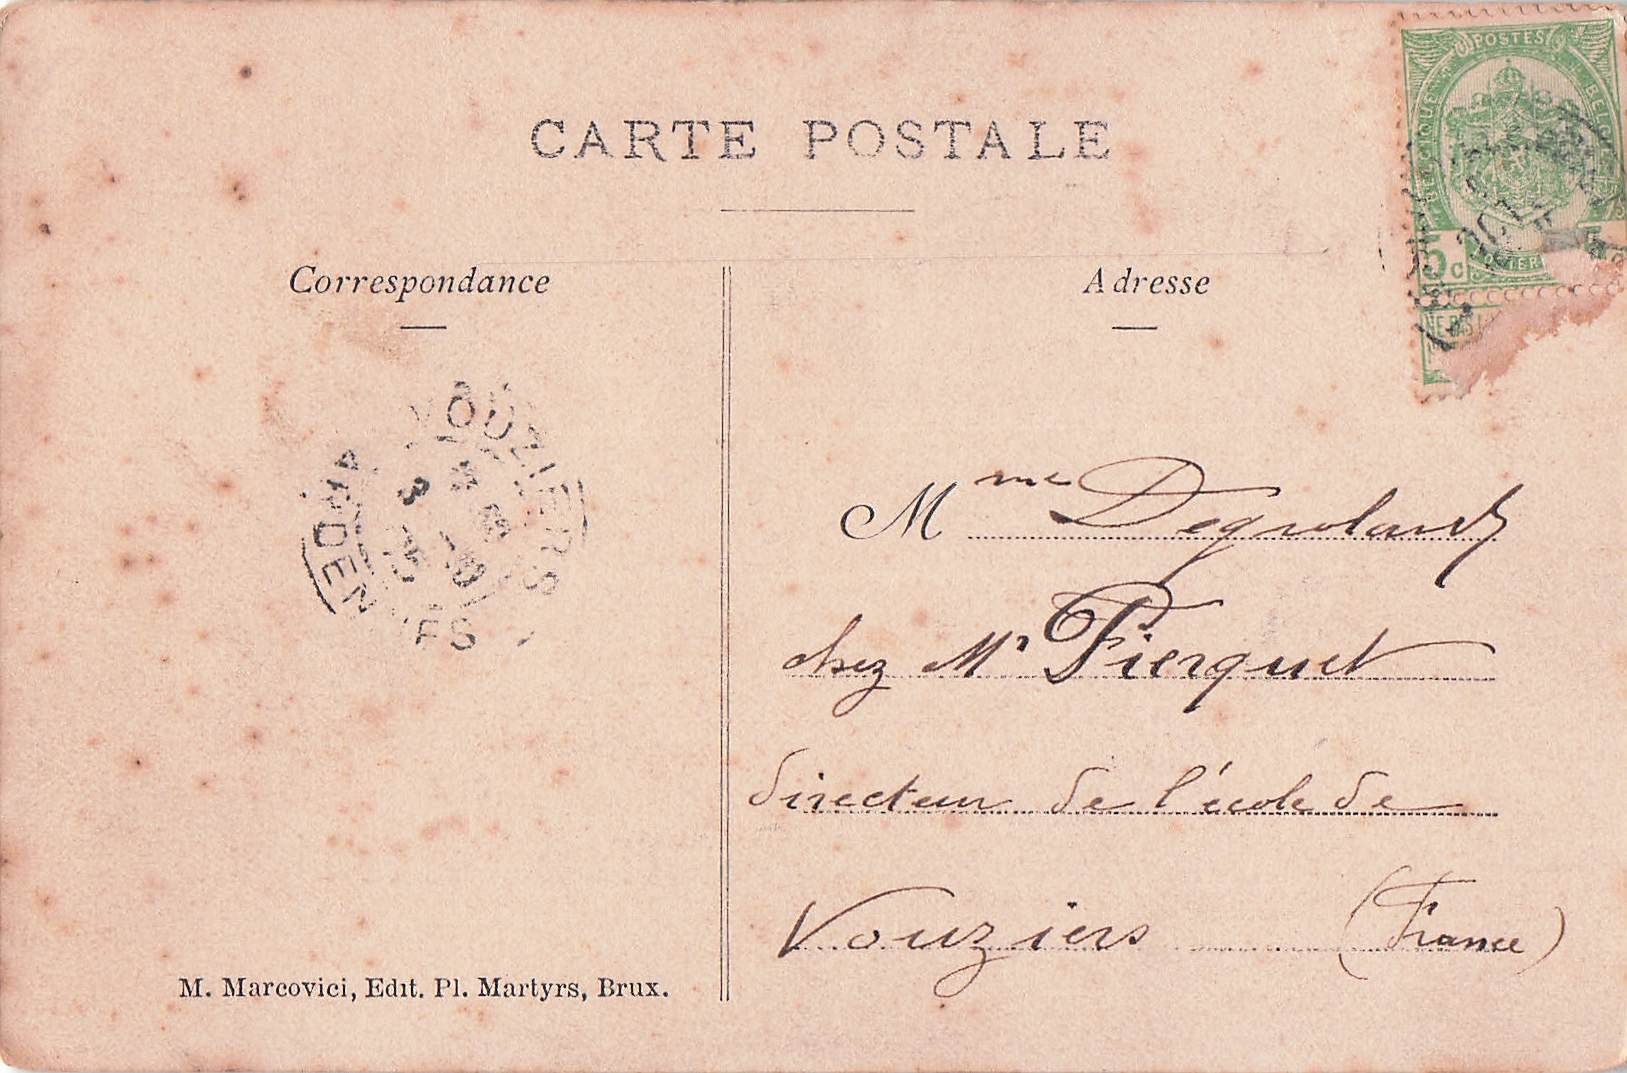 CARTE POSTALE
POSTES
BELGIQUE
5c
Correspondance
Adresse
VOUZIERS
ARDENNES
Mme Degroland
chez Mr Pierquet
directeur de l'école de
Vouziers (France)
M. Marcovici, Edit. Pl. Martyrs, Brux.